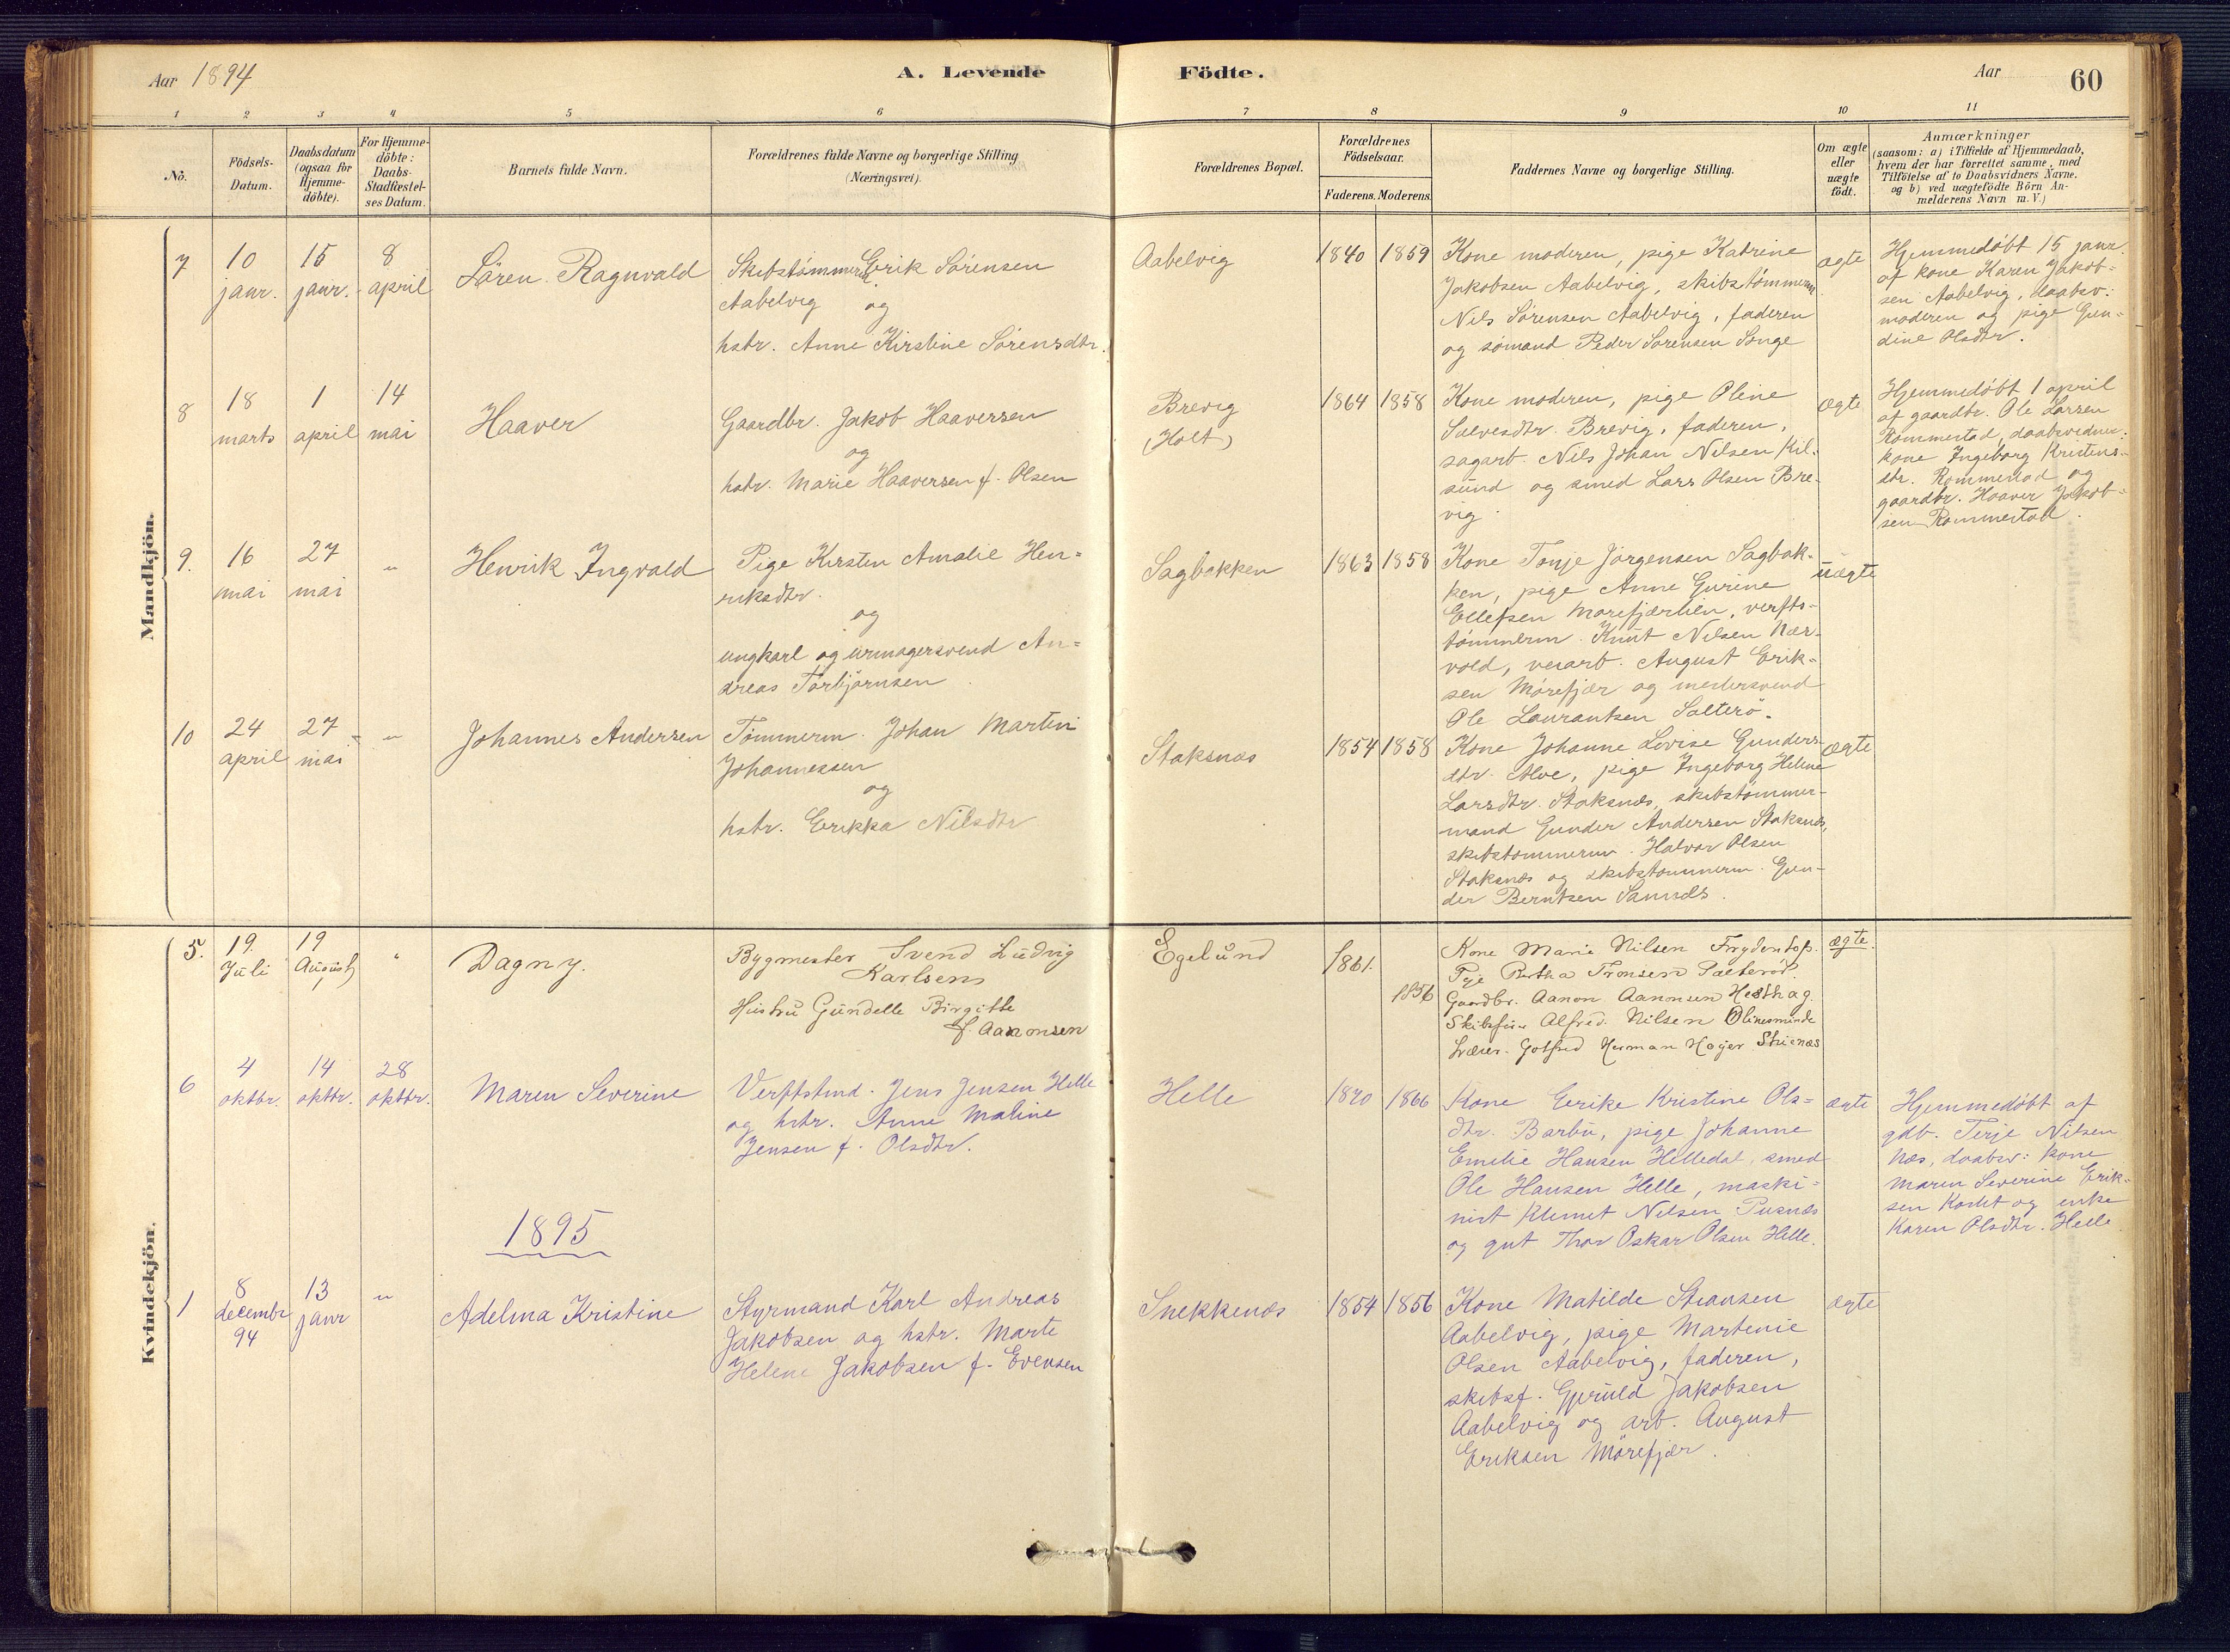 Aar 1894
A. Levende
Födte.
Aar
60
1 2 3 4 5 6 7 8 9 10 11
No.
Födsels-
Datum.
Daabsdatum
(ogsaa for
Hjemme-
döbte).
For Hjemme-
döbte:
Daabs-
Stadfæstel-
ses Datum.
Barnets fulde Navn.
Forældrenes fulde Navne og borgerlige Stilling
(Næringsvei).
Forældrenes Bopæl.
Forældrenes
Födselsaar.
Faderens. Moderens.
Faddernes Navne og borgerlige Stilling.
Om ægte
eller
uægte
födt.
Anmærkninger
(saasom: a) i Tilfælde af Hjemmedaab,
hvem der har forrettet samme, med
Tilföielse af to Daabsvidners Navne.
og b) ved uægtefödte Börn An-
melderens Navn m.V.)
Mandkjön.
7
10
janr.
15
janr.
8
april
Sören Ragnvald
Skibstømmerm. Erik Sørensen
Aabelvig og
hstr. Anne Kirstine Sørensdtr.
Aabelvig
1840 1859
Kone moderen, pige Katrine
Jakobsen Aabelvig, skibstømmerm.
Nils Sørensen Aabelvig, faderen
og sømand Peder Sørensen Songe
ægte
Hjemmedøbt 15 janr.
af kone Karen Jakob-
sen Aabelvig, daabsv:
moderen og pige Gun-
dine Olsdtr.
8
18
marts
1
april
14
mai
Haaver
Gaardbr. Jakob Haaversen
og
hstr. Marie Haaversen f. Olsen
Brevig
(Holt)
1864 1858
Kone moderen, pige Oline
Salvesdtr. Brevig, faderen,
sagarb. Nils Johan Nilsen Kil-
sund og smed Lars Olsen Bre-
vig.
ægte
Hjemmedøbt 1 april
af gaardbr. Ole Larsen
Rommestad, daabsvidner:
kone Ingeborg Kristens-
dtr. Rommestad og
gaardbr. Haaver Jakob-
sen Rommestad.
9.
16
mai
27
mai
"
Henrik Ingvald
Pige Kirsten Amalie Hen-
riksdtr.
og
ungkarl og urmagersvend An-
dreas Torbjørnsen
Sagbakken
1863 1858
Kone Tonje Jørgensen Sagbak-
ken, pige Anne Gurine
Ellefsen Mørefjærlien, verfts-
tømmerm. Knut Nilsen Nær-
vold, veiarb. August Erik-
sen Mørefjær og mestersvend
Ole Laurantsen Salterö.
uægte
10
24
april
27
mai
"
Johannes Andersen
Tømmerm. Johan Martin
Johannessen
og
hstr. Erikka Nilsdtr
Staksnæs
1854 1858
Kone Johanne Lovise Gunders-
dtr. Alve, pige Ingeborg Helene
Larsdtr. Staksnæs, skibstømmer-
mand Gunder Andersen Staksnæs,
skibstømmerm. Halvor Olsen
Staksnæs og skibstømmerm. Gun-
der Berntsen Sannæs.
ægte
Kvindekjön.
5.
19.
Juli
19
August
"
Dagny.
Bygmester Svend Ludvig
Karlsen
Hustru Gundelle Birgitte
f. Aanonsen
Egelund
1861.
1856
Kone Marie Nilsen
Pige Bertha Tronsen Salterød.
Gaardbr. Aanon Aanonsen Hesthag.
Skibsfür. Alfred Nilsen Olinesminde
Gotfred Herman Høyer
ægte.
6
4
oktbr.
14
oktbr.
28
oktbr.
Maren Severine
Verftstmd. Jens Jensen Helle
og hstr. Anne Maline
Jensen f. Olsdtr.
Helle
1870 1866
Kone Eerike Kristine Ols-
dtr. Barbu, pige Johanne
Emelie Hansen Helledal, smed
Ole Hansen Helle, maski-
nist Klemet Nilsen Pusnæs
og gut Thor Oskar Olsen Helle.
ægte
Hjemmedøbt af
gdb. Terje Nilsen
Næs, daabsv: kone
Maren Severine Erik-
sen og enke
Karen Olsdtr. Helle.
1895
1
8
decembr
94
13
janr
"
Adelma Kristine
Styrmand Karl Andreas
Jakobsen og hstr. Marte
Helene Jakobsen f. Evensen
Snekkenæs
1854 1856
Kone Matilde Stiansen
Aabelvig, pige Martenie
Olsen Aabelvig, faderen,
skibsf. Gjeruld Jakobsen
Aabelvig og arb. August
Eriksen Mörefjær.
ægte